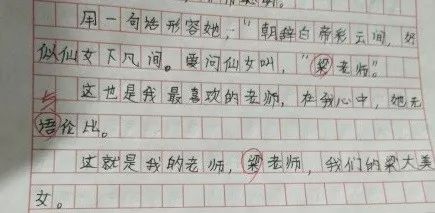 用一句话形容她，“朝辞白帝彩云间，好
似仙女下凡间。要问仙女叫，“梁老师”。
这也是我最喜欢的老师，在我心中，她无
与
语伦比。
这就是我的老师，梁老师，我们的梁大美
女。